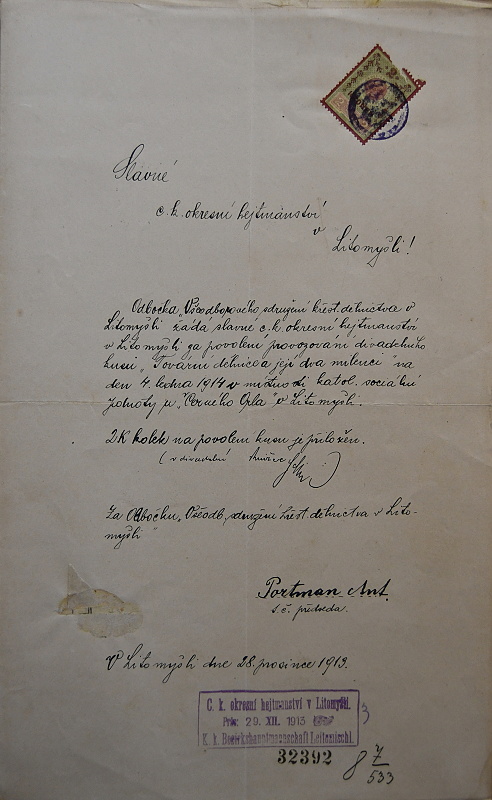 Slavné
c. k. okresní hejtmanství
v
Litomyšli!
Odbočka „Všeodborového sdružení křest. dělnictva v
Litomyšli žádá slavné c. k. okresní hejtmanství
v Litomyšli za povolení provozování divadelního
kusu „Tovární dělnice a její dva milenci" na
den 4. ledna 1914 v místnosti katol. sociální
jednoty u „Černého Orla" v Litomyšli.
2K kolek na povolení kusu je přiložen.
(v divadelní
Za Odbočku „Všeodb. sdružení křest. dělnictva v Lito-
myšli"
Portman Ant.
t. č. předseda.
V Litomyšli dne 28. prosince 1913.
C. k. okresní hejtmanství v Litomyšli.
Präs. 29. XII. 1913
K. k. Bezirkshauptmannschaft Leitomischl.
3
32392
8 7/533